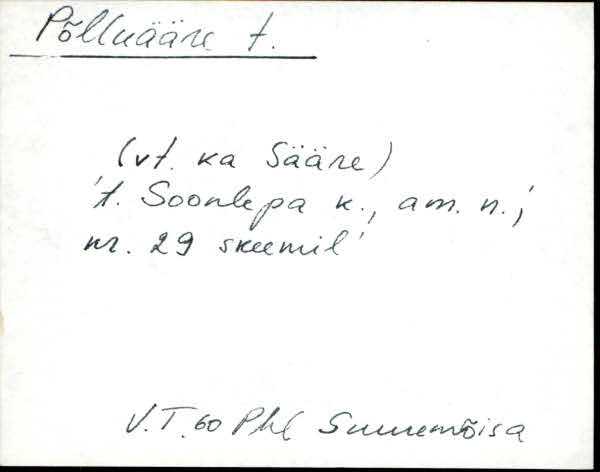 Põlluääre t.
(vt. ka Sääre)
't. Soonlepa k., am. n.,'
nr. 29 skeemil'
V.T. 60 Phl Suuremõisa